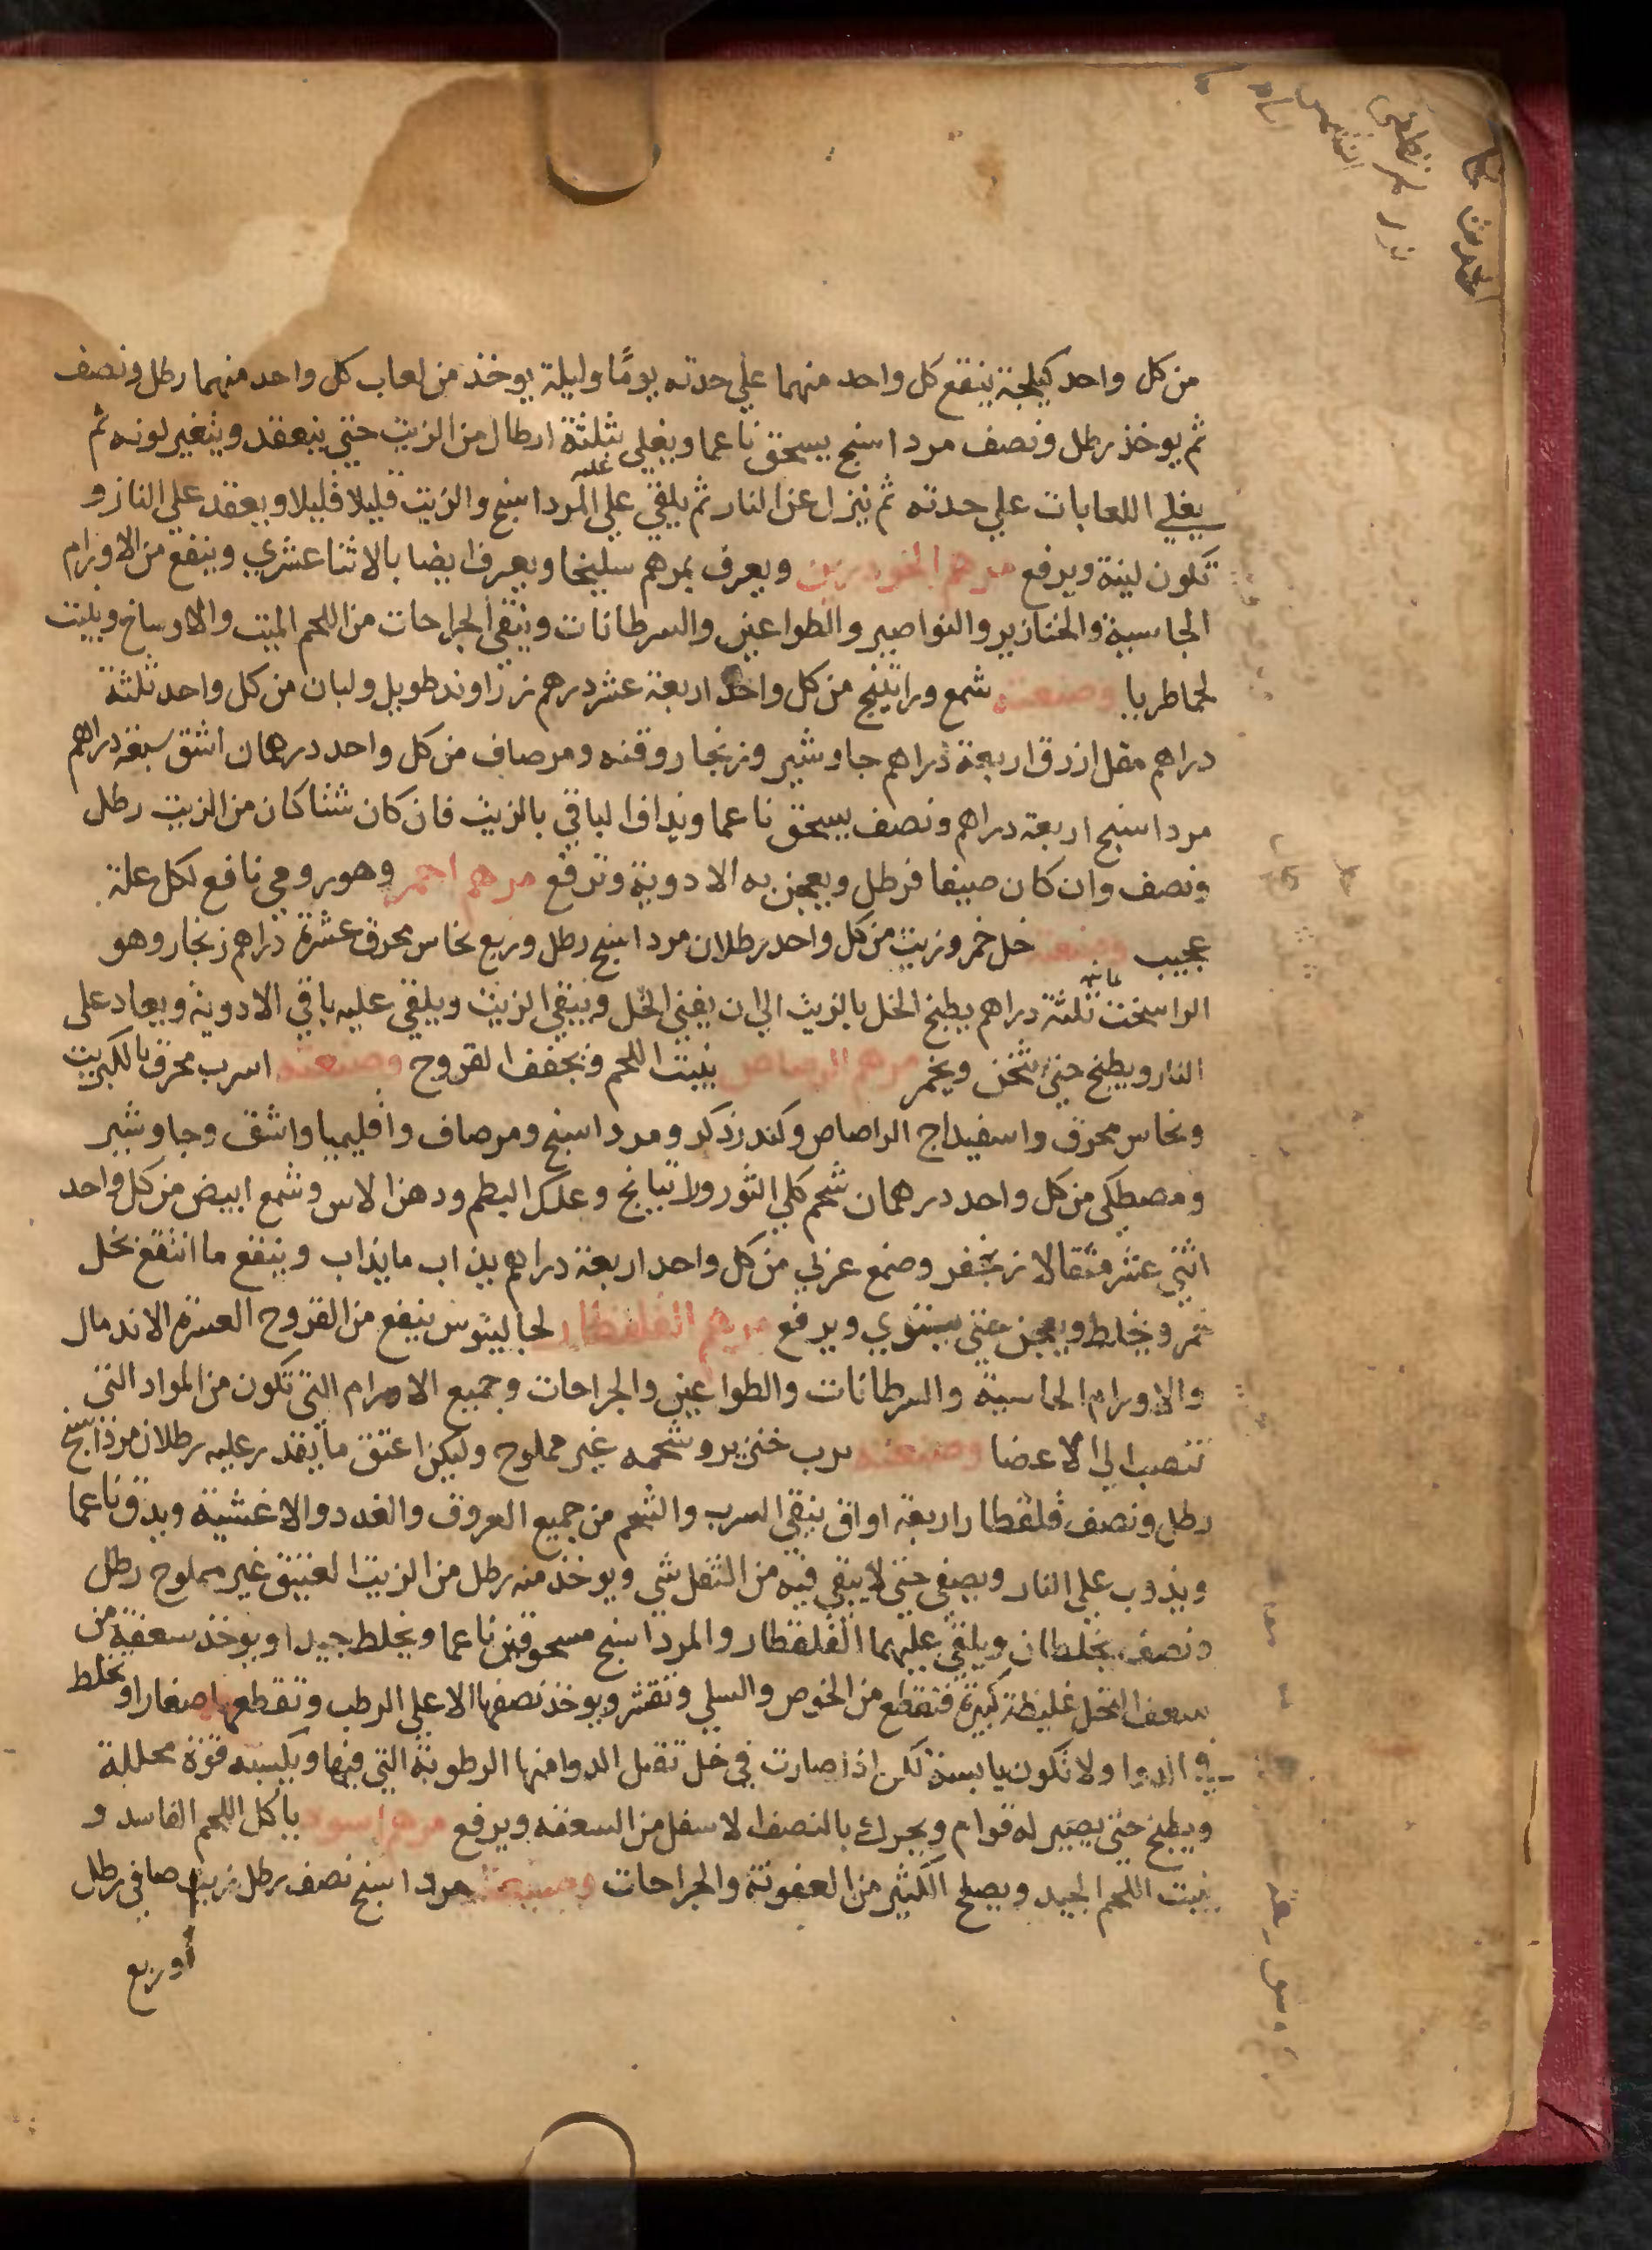 من كل واحد كيلجة ينقع كل واحد منهما علي حدته يومًا وليلة يوخذ من لعاب كل واحد منهما رطل ونصف
ثم يوخذ رطل ونصف مرداسنج يسحق ناعما ويغلي بثلثة ارطال من الزيت حتي ينعقد ويتغير لونه ثم
يغلي اللعابات علي حدته ثم ينزل عن النار ثم يلقي علي المرداسنج والزيت قليلا قليلا ويعقد علي النار و
تكون لينة ويرفع مرهم ويعرف بمرهم سليخا ويعرف ايضا بالاثنا عشري وينفع من الاورام
الجاسية والخنازير والنواصير والطواعين والسرطانات وينقي الجراحات من اللحم الميت والاوساخ ويلينت
لحماطريا وصنعته شمع وراتينج من كل واحد اربعة عشر درهم زراوند طويل ولبان من كل واحد ثلثة
دراهم مقل ازرق اربعة دراهم جاوشير وزنجار وقنه ومر صاف من كل واحد درهمان اشق سبعة دراهم
مرداسنج اربعة دراهم ونصف يسحق ناعما ويداف الباقي بالزيت فان كان شتا كان من الزيت رطل
ونصف وان كان صيفا فرطل ويعجن به الادوية وترفع مرهم احمر وهو رومي نافع لكل علة
عجيب وصنعته خل خمر وزيت من كل واحد رطلان مرداسنج رطل وربع نحاس محرق عشرة دراهم زنجار وهو
الراسخت ثلثة دراهم يطبخ الخل بالزيت الي ان يفني الخل ويبقي الزيت ويلقي عليه باقي الادوية ويعاد علي
النار ويطبخ حتي يثخن ويحمر مرهم الرصاص ينبت اللحم ويجفف القروح وصنعته اسرب محرق بالكبريت
ونحاس محرق واسفيداج الراصاص وكندر ذكر ومرداسنج ومر صاف واقليميا واشق وجاوشير
ومصطكي من كل واحد درهمان شحم كلي الثور وراتيانج وعلك البطم ودهن الاس وشمع ابيض من كل واحد
اثني عشر مثقالا زنجفر وصمغ عربي من كل واحد اربعة دراهم يذاب ما يذاب وينقع ما انتقع بخل
خمر ويخلط ويعجن حتي يستوي ويرفع مرهم القلقطار لجالينوس ينفع من القروح العسرة الاندمال
والاورام الجاسية والسرطانات والطواعين والجراحات وجميع الاورام التي تكون من المواد التي
تنصب الي الاعضا وصنعته سرب خنزير وشحمه غير مملوح وليكن اعتق ما يقدر عليه رطلان مرداسنج
رطل ونصف قلقطار اربعة اواق ينقي السرب والشحم من جميع العروق والغدد والاغشية ويدق ناعما
ويذوب علي النار ويصفي حتي لا يبقي فيه من الثفل شي ويوخذ منه رطل من الزيت العتيق غير مملوح رطل
ونصف يخلطان ويلقي عليهما القلقطار والمرداسنج مسحوقين ناعما ويخلط جيدا ويوخذ سعفة من
سعف النخل غليظة كبيرة فتقطع من الخوص والسلي وتقشر ويوخذ نصفها الاعلي الرطب وتقطعها صغارا ويخلط
في الدوا ولا تكون يابسة لكن اذا صارت في خل تقبل الدوا منها الرطوبة التي فيها ويكسبه قوة محللة
ويطبخ حتي يصير له قوام ويحرك بالنصف الاسفل من السعفه ويرفع مرهم اسود ياكل اللحم الفاسد و
ينبت اللحم الجيد ويصلح الكثير من العفونة والجراحات وصنعته مرداسنج نصف رطل زيت صافي رطل
وربع